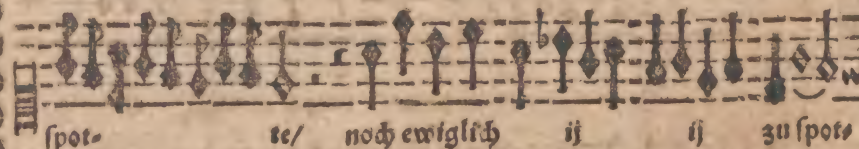 ſpot⸗ te/ noch ewiglich ij ij zu ſpot⸗